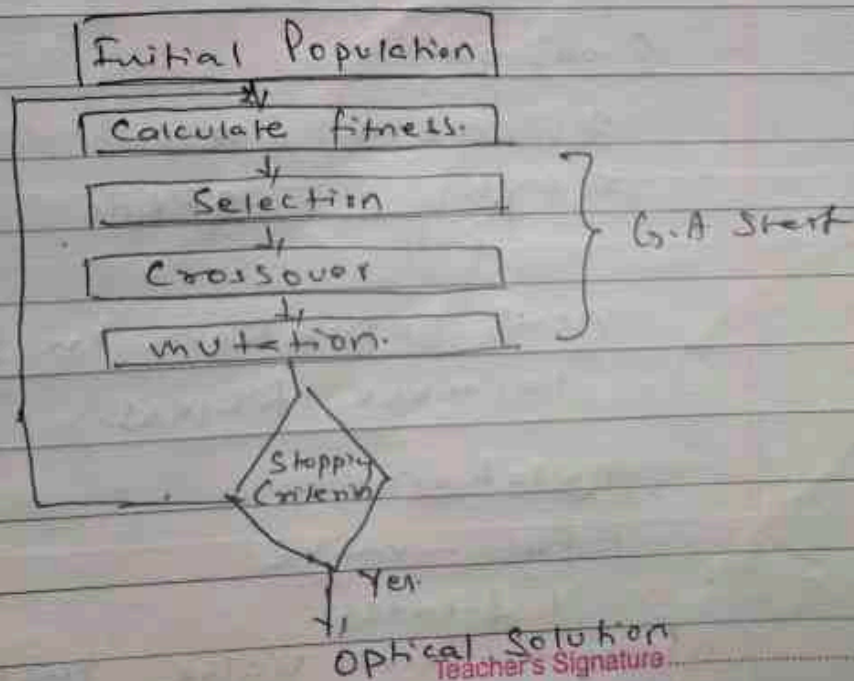 Initial Population
Calculate fitness.
Selection
Crossover
G.A Start
mutation.
Stopping
Criteria
Yes.
Optical Solution
Teacher's Signature